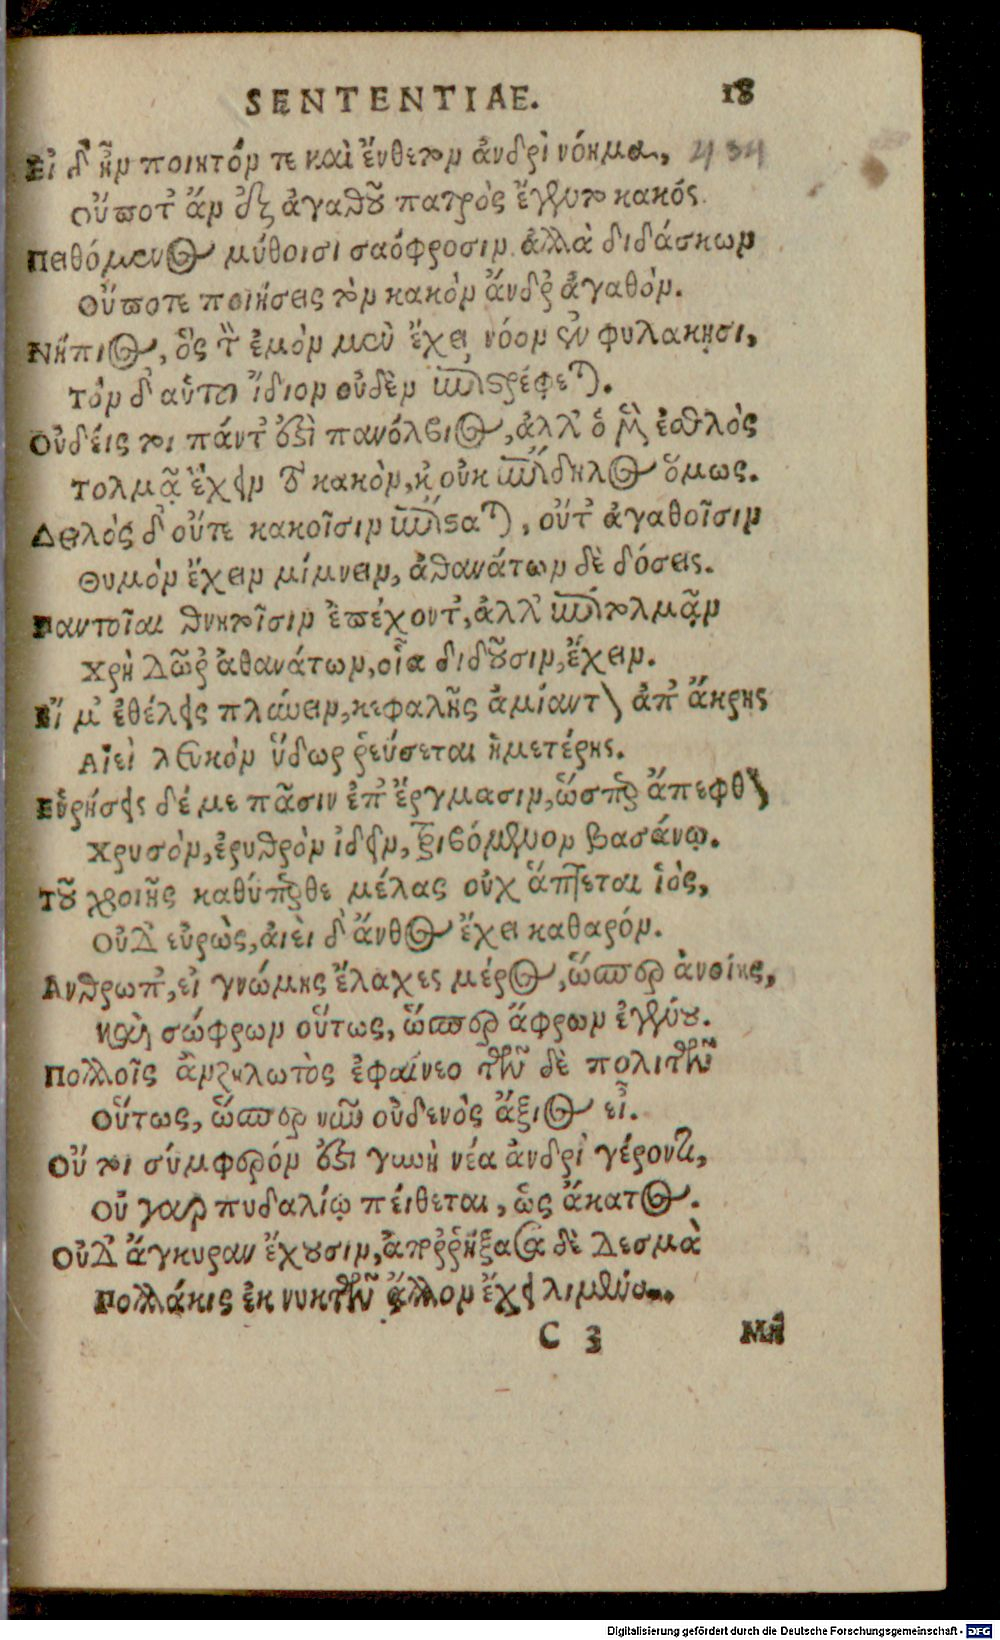 SENTENTIAE. 18
Εἰ δ᾽ ἦν ποιητόν τε καὶ ἔνθετον ἀνδρὶ νόημα, 434
Οὔποτ᾽ ἄν ἐξ ἀγαθοῦ πατρὸς ἔγεντο κακός.
Πειθόμενος μύθοισι σαόφροσιν. ἀλλὰ διδάσκων
Οὔποτε ποιήσεις τὸν κακὸν ἄνδρ᾽ ἀγαθὸν.
Νήπιος, ὃς τ᾽ ἐμὸν μὲν ἔχει νόον ἐν φυλακῇσι,
Τὸν δ᾽ αὑτοῦ ἴδιον οὐδὲν ἐπιστρέφεται.
Οὐδείς τοι πάντ᾽ ἐστὶ πανόλβιος, ἀλλ᾽ ὁ μὲν ἐσθλὸς
Τολμᾷ ἔχειν τὸ κακὸν, κ᾽ οὐκ ἐπίδηλος ὅμως.
Δειλὸς δ᾽ οὔτε κακοῖσιν ἐπίσταται, οὔτ᾽ ἀγαθοῖσιν
Θυμὸν ἔχειν μίμνειν, ἀθανάτων δὲ δόσεις.
Παντοῖαι θνητοῖσιν ἐπέχοντ᾽, ἀλλ᾽ ἐπιτολμᾷν
Χρὴ δῶρ᾽ ἀθανάτων, οἷα διδοῦσιν, ἔχειν.
Εἴ μ᾽ ἐθέλεις πλάυειν, κεφαλῆς ἀμίαντον ἀπ᾽ ἄκρης
Αἰεὶ λευκὸν ὕδωρ ῥεύσεται ἡμετέρης.
Εὑρήσεις δέ με πᾶσιν ἐπ᾽ ἔργμασιν, ὥσπερ ἄπεφθον
Χρυσὸν, ἐρυθρὸν ἰδεῖν, τριβόμενον βασάνῳ.
Τοῦ χροιῆς καθύπερθε μέλας οὐχ ἅπτεται ἰὸς,
Οὐδ᾽ εὐρὼς, αἰὲι δ᾽ ἄνθος ἔχει καθαρόν.
Ανθρωπ᾽, εἰ γνώμης ἔλαχες μέρος, ὥσπερ ἀνοίης,
Καὶ σώφρων οὕτως, ὥσπερ ἄφρων ἐγένου.
Πολλοῖς ἂν ζηλωτὸς ἐφαίνεο τῶν δὲ πολιτῶν
Οὕτως, ὥσπερ νῦν οὐδενὸς ἄξιος εἶ.
Οὔ τοι σύμφορόν ἐστι γυνὴ νέα ἀνδρὶ γέροντι,
Οὐ γαρ πυδαλίῳ πέιθεται, ὡς ἄκατος.
Οὐδ᾽ ἄγκυραν ἔχουσιν, ἀποῤῥήξασα δὲ δεσμὰ
Πολλάκις ἐκ νυκτῶν ἄλλον ἔχει λιμένα.
C 3 Μὴ
Digitalisierung gefördert durch die Deutsche Forschungsgemeinschaft - DFG